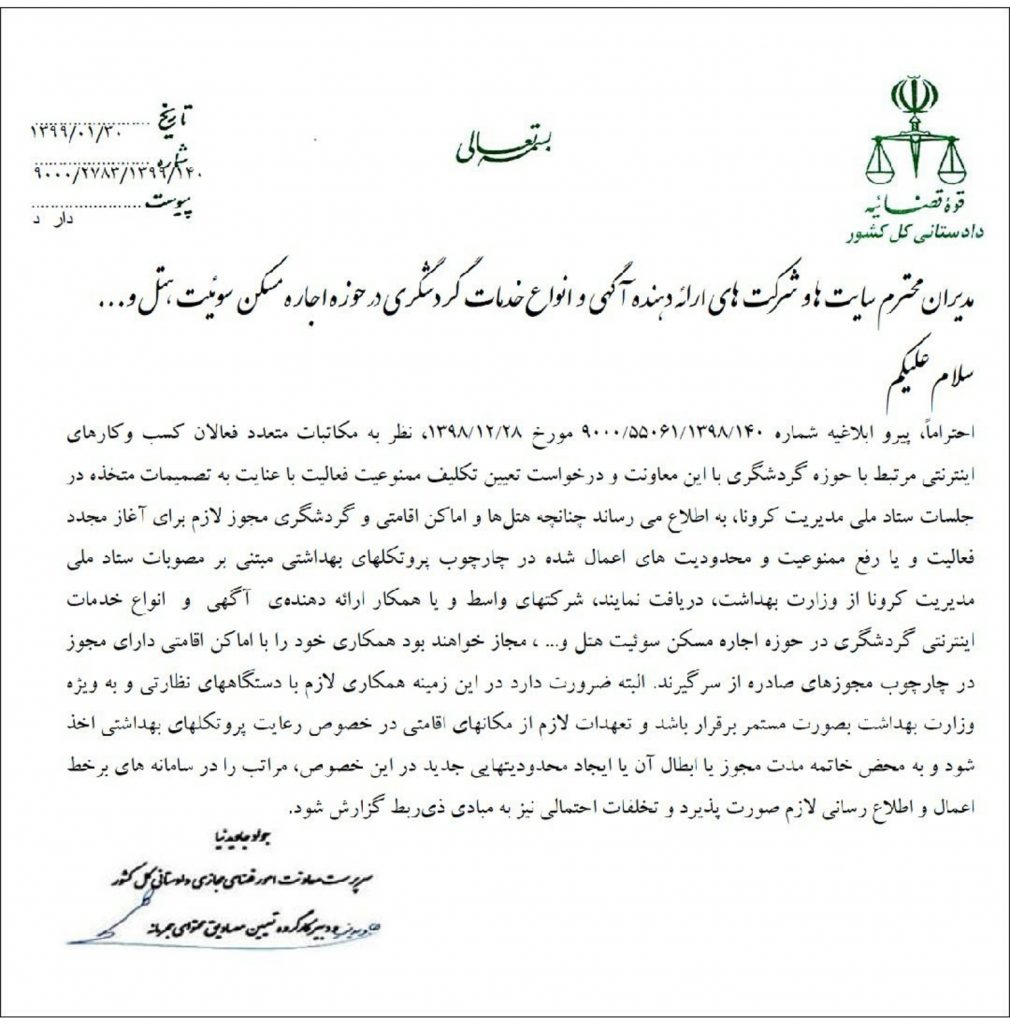 قوهٔ قضائیه
دادستانی کل کشور
بسمه تعالی
تاریخ ۱۳۹۹/۰۱/۳۰
شماره ۹۰۰۰/۲۷۸۳/۱۳۹۹/۱۴۰
پیوست
دار د
مدیران محترم سایت ها و شرکت های ارائه دهنده آگهی و انواع خدمات گردشگری در حوزه اجاره مسکن سوئیت هتل و...
سلام علیکم
احتراماً، پیرو ابلاغیه شماره ۹۰۰۰/۵۵۰۶۱/۱۳۹۸/۱۴۰ مورخ ۱۳۹۸/۱۲/۲۸، نظر به مکاتبات متعدد فعالان کسب وکارهای
اینترنتی مرتبط با حوزه گردشگری با این معاونت و درخواست تعیین تکلیف ممنوعیت فعالیت با عنایت به تصمیمات متخذه در
جلسات ستاد ملی مدیریت کرونا، به اطلاع می رساند چنانچه هتل‌ها و اماکن اقامتی و گردشگری مجوز لازم برای آغاز مجدد
فعالیت و یا رفع ممنوعیت و محدودیت های اعمال شده در چارچوب پروتکلهای بهداشتی مبتنی بر مصوبات ستاد ملی
مدیریت کرونا از وزارت بهداشت، دریافت نمایند، شرکتهای واسط و یا همکار ارائه دهنده‌ی آگهی و انواع خدمات
اینترنتی گردشگری در حوزه اجاره مسکن سوئیت هتل و... ، مجاز خواهند بود همکاری خود را با اماکن اقامتی دارای مجوز
در چارچوب مجوزهای صادره از سرگیرند. البته ضرورت دارد در این زمینه همکاری لازم با دستگاههای نظارتی و به ویژه
وزارت بهداشت بصورت مستمر برقرار باشد و تعهدات لازم از مکانهای اقامتی در خصوص رعایت پروتکلهای بهداشتی اخذ
شود و به محض خاتمه مدت مجوز یا ابطال آن یا ایجاد محدودیتهایی جدید در این خصوص، مراتب را در سامانه های برخط
اعمال و اطلاع رسانی لازم صورت پذیرد و تخلفات احتمالی نیز به مبادی ذی‌ربط گزارش شود.
جواد جاویدنیا
سرپرست معاونت امور فضای مجازی دادستانی کل کشور
و دبیر کارگروه تعیین مصادیق محتوای مجرمانه